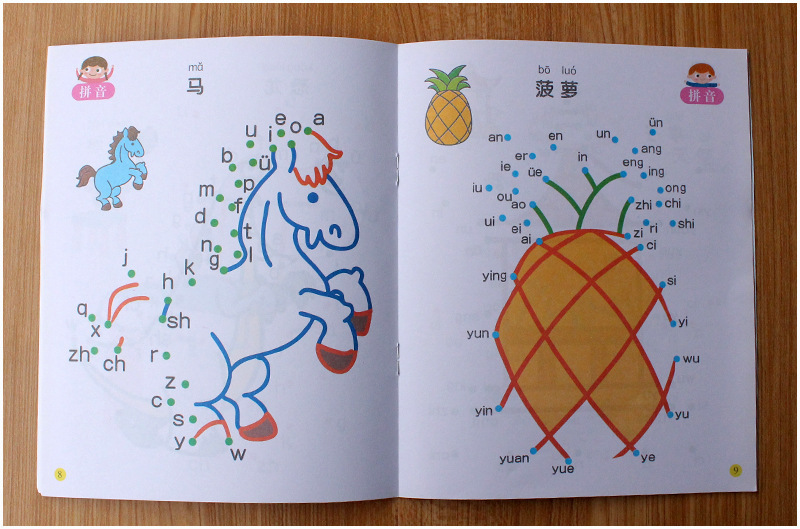 mǎ
马
拼音
a
e
o
i
u
ü
b
p
m
f
d
t
n
l
g
k
j
h
q
x
sh
zh
ch
r
z
c
s
y
w
8
bō luó
菠 萝
拼音
ün
un
en
an
ang
er
in
eng
ie
üe
ing
iu
ong
ou
ao
zhi
chi
ui
ei
ri
shi
ai
zi
ci
ying
si
yun
yi
wu
yin
yu
yuan
yue
ye
9